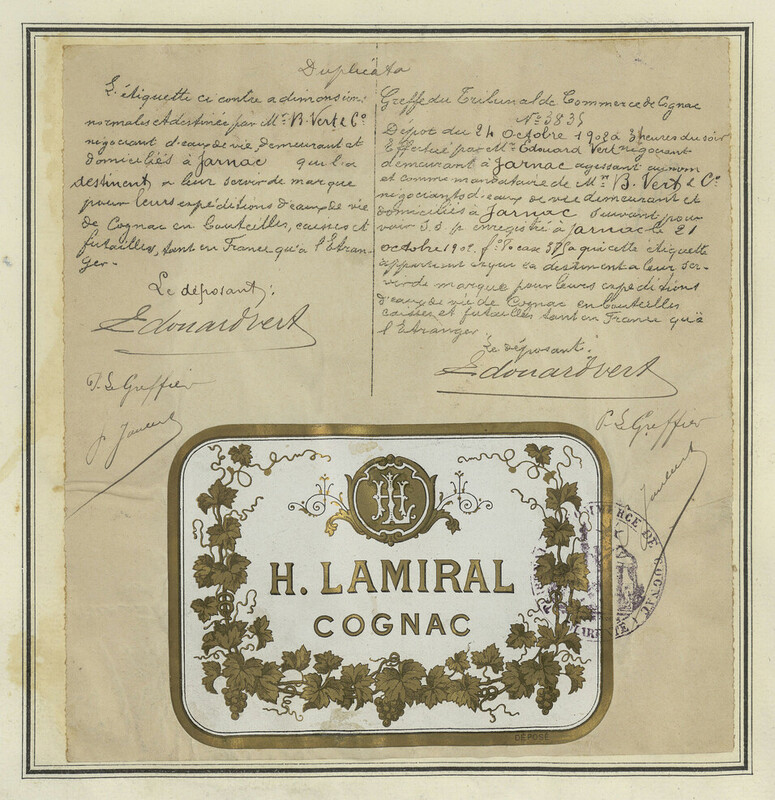 Duplicata
L'étiquette ci contre a dimensions
normales est destinée par Mrs B. Vert & Co
négociant d'eaux de vie demeurant et
domiciliés à Jarnac qui la
destinent a leur servir de marque
pour leurs expéditions d'eaux de vie
de Cognac en bouteilles, caisses et
futailles, tant en France qu'à l'Etran-
ger.
Le déposant:
Edouard Vert
P. Le Greffier
Greffe du Tribunal de Commerce de Cognac
No 3835
Dépot du 24 octobre 1908 à 3 heures du soir
Effectué par Mr Edouard Vert négociant
demeurant à Jarnac agissant au nom
et comme mandataire de Mrs B. Vert & Co
négociants d'eaux de vie demeurant et
domiciliés à Jarnac suivant pou-
voir S.S.P. enregistré à Jarnac le 21
octobre case à qui cette étiquette
appartient et qui la destinent a leur ser-
vir de marque pour leurs expéditions
d'eaux de vie de Cognac en bouteilles
caisses et futailles tant en France qu'à
l'Etranger.
Le déposant:
Edouard Vert
P. Le Greffier
HL
H. LAMIRAL
COGNAC
DÉPOSÉ
COMMERCE DE COGNAC
CHARENTE